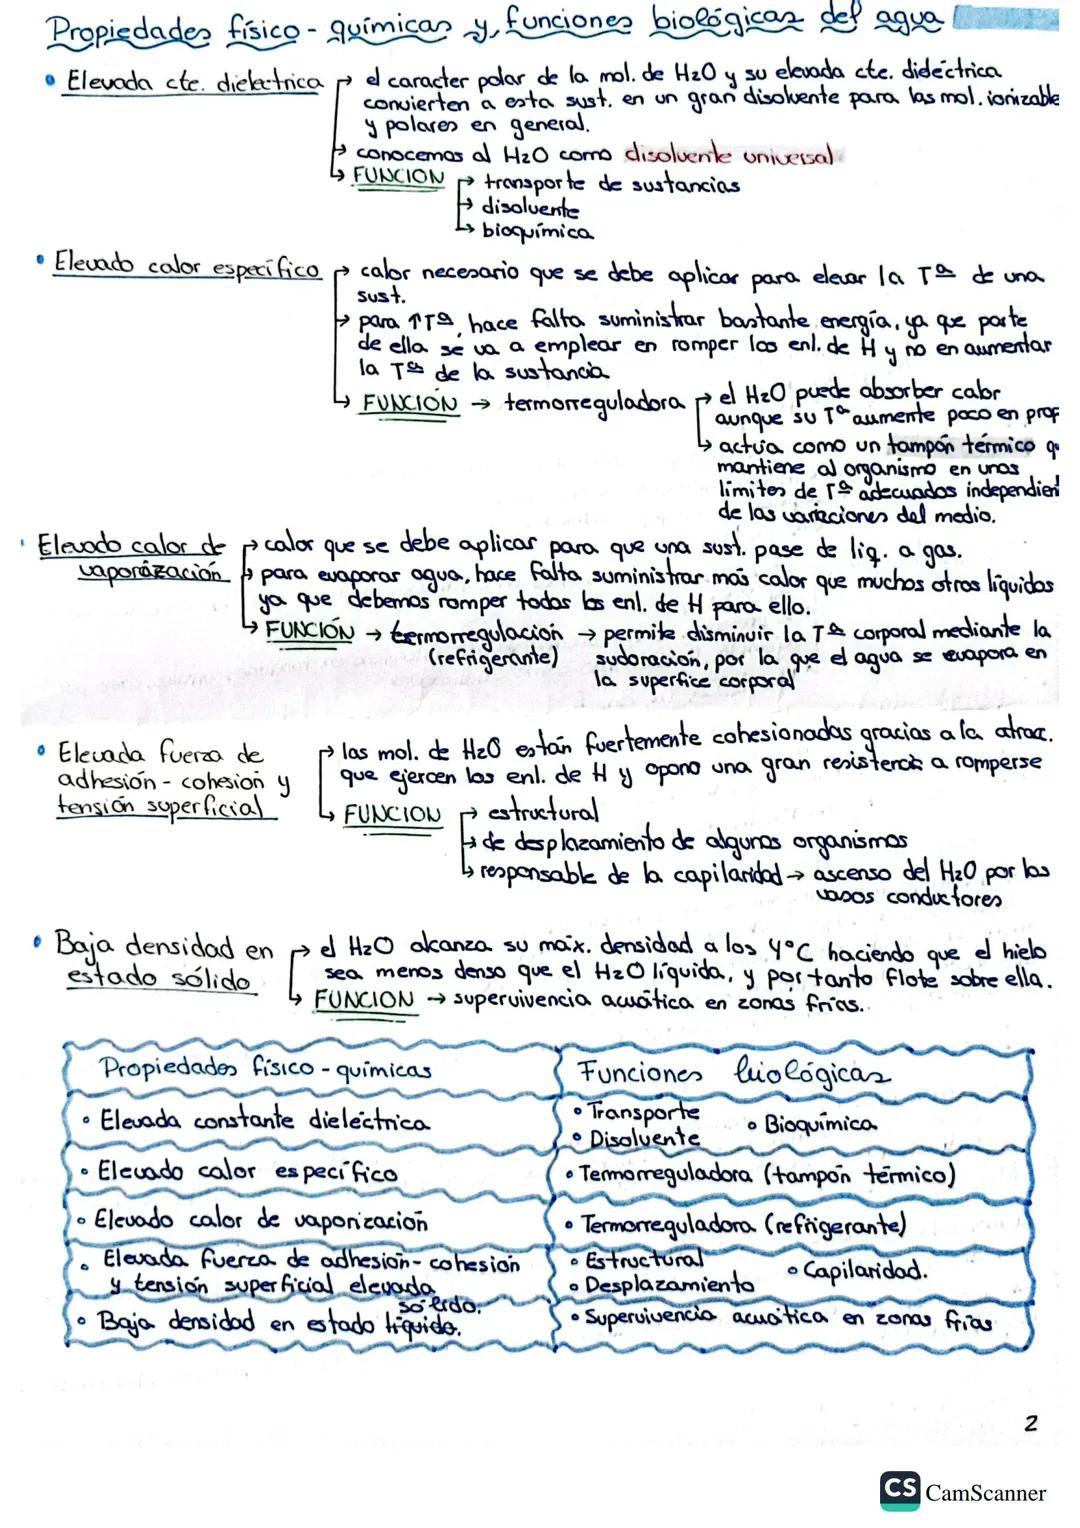 Propiedades físico - químicas y funciones biológicas del agua
• Elevada cte. dielectrica → el caracter polar de la mol. de H2O y su elevada cte. dieléctrica
convierten a esta sust. en un gran disolvente para las mol. ionizable
y polares en general.
→ conocemos al H2O como disolvente universal
→ FUNCION → transporte de sustancias
→ disolvente
→ bioquímica
• Elevado calor específico → calor necesario que se debe aplicar para elevar la Tª de una
sust.
→ para ↑Tª, hace falta suministrar bastante energía, ya que parte
de ella se va a emplear en romper los enl. de H y no en aumentar
la Tª de la sustancia
→ FUNCIÓN → termorreguladora → el H2O puede absorber calor
aunque su Tª aumente poco en prop
→ actúa como un tampón térmico q
mantiene al organismo en unos
límites de Tª adecuados independien
de las variaciones del medio.
• Elevado calor de → calor que se debe aplicar para que una sust. pase de liq. a gas.
vaporización → para evaporar agua, hace falta suministrar más calor que muchos otros líquidos
ya que debemos romper todos los enl. de H para ello.
→ FUNCIÓN → termorregulación → permite disminuir la Tª corporal mediante la
(refrigerante) sudoración, por la que el agua se evapora en
la superfice corporal
• Elevada fuerza de → las mol. de H2O están fuertemente cohesionadas gracias a la atrac.
adhesión - cohesión y que ejercen los enl. de H y opono una gran resistencia a romperse
tensión superficial → FUNCION → estructural
→ de desplazamiento de algunos organismos
→ responsable de la capilaridad → ascenso del H2O por los
vasos conductores
• Baja densidad en → el H2O alcanza su máx. densidad a los 4°C haciendo que el hielo
estado sólido sea menos denso que el H2O líquida, y por tanto flote sobre ella.
→ FUNCION → supervivencia acuática en zonas frías.
Propiedades físico - químicas Funciones biológicas
• Elevada constante dieléctrica • Transporte • Bioquímica
• Disolvente
• Elevado calor específico • Termorreguladora (tampón térmico)
• Elevado calor de vaporización • Termorreguladora (refrigerante)
• Elevada fuerza de adhesión - cohesión • Estructural • Capilaridad.
y tensión superficial elevada • Desplazamiento
sólido.
• Baja densidad en estado líquido. • Supervivencia acuática en zonas frías
2
CS CamScanner